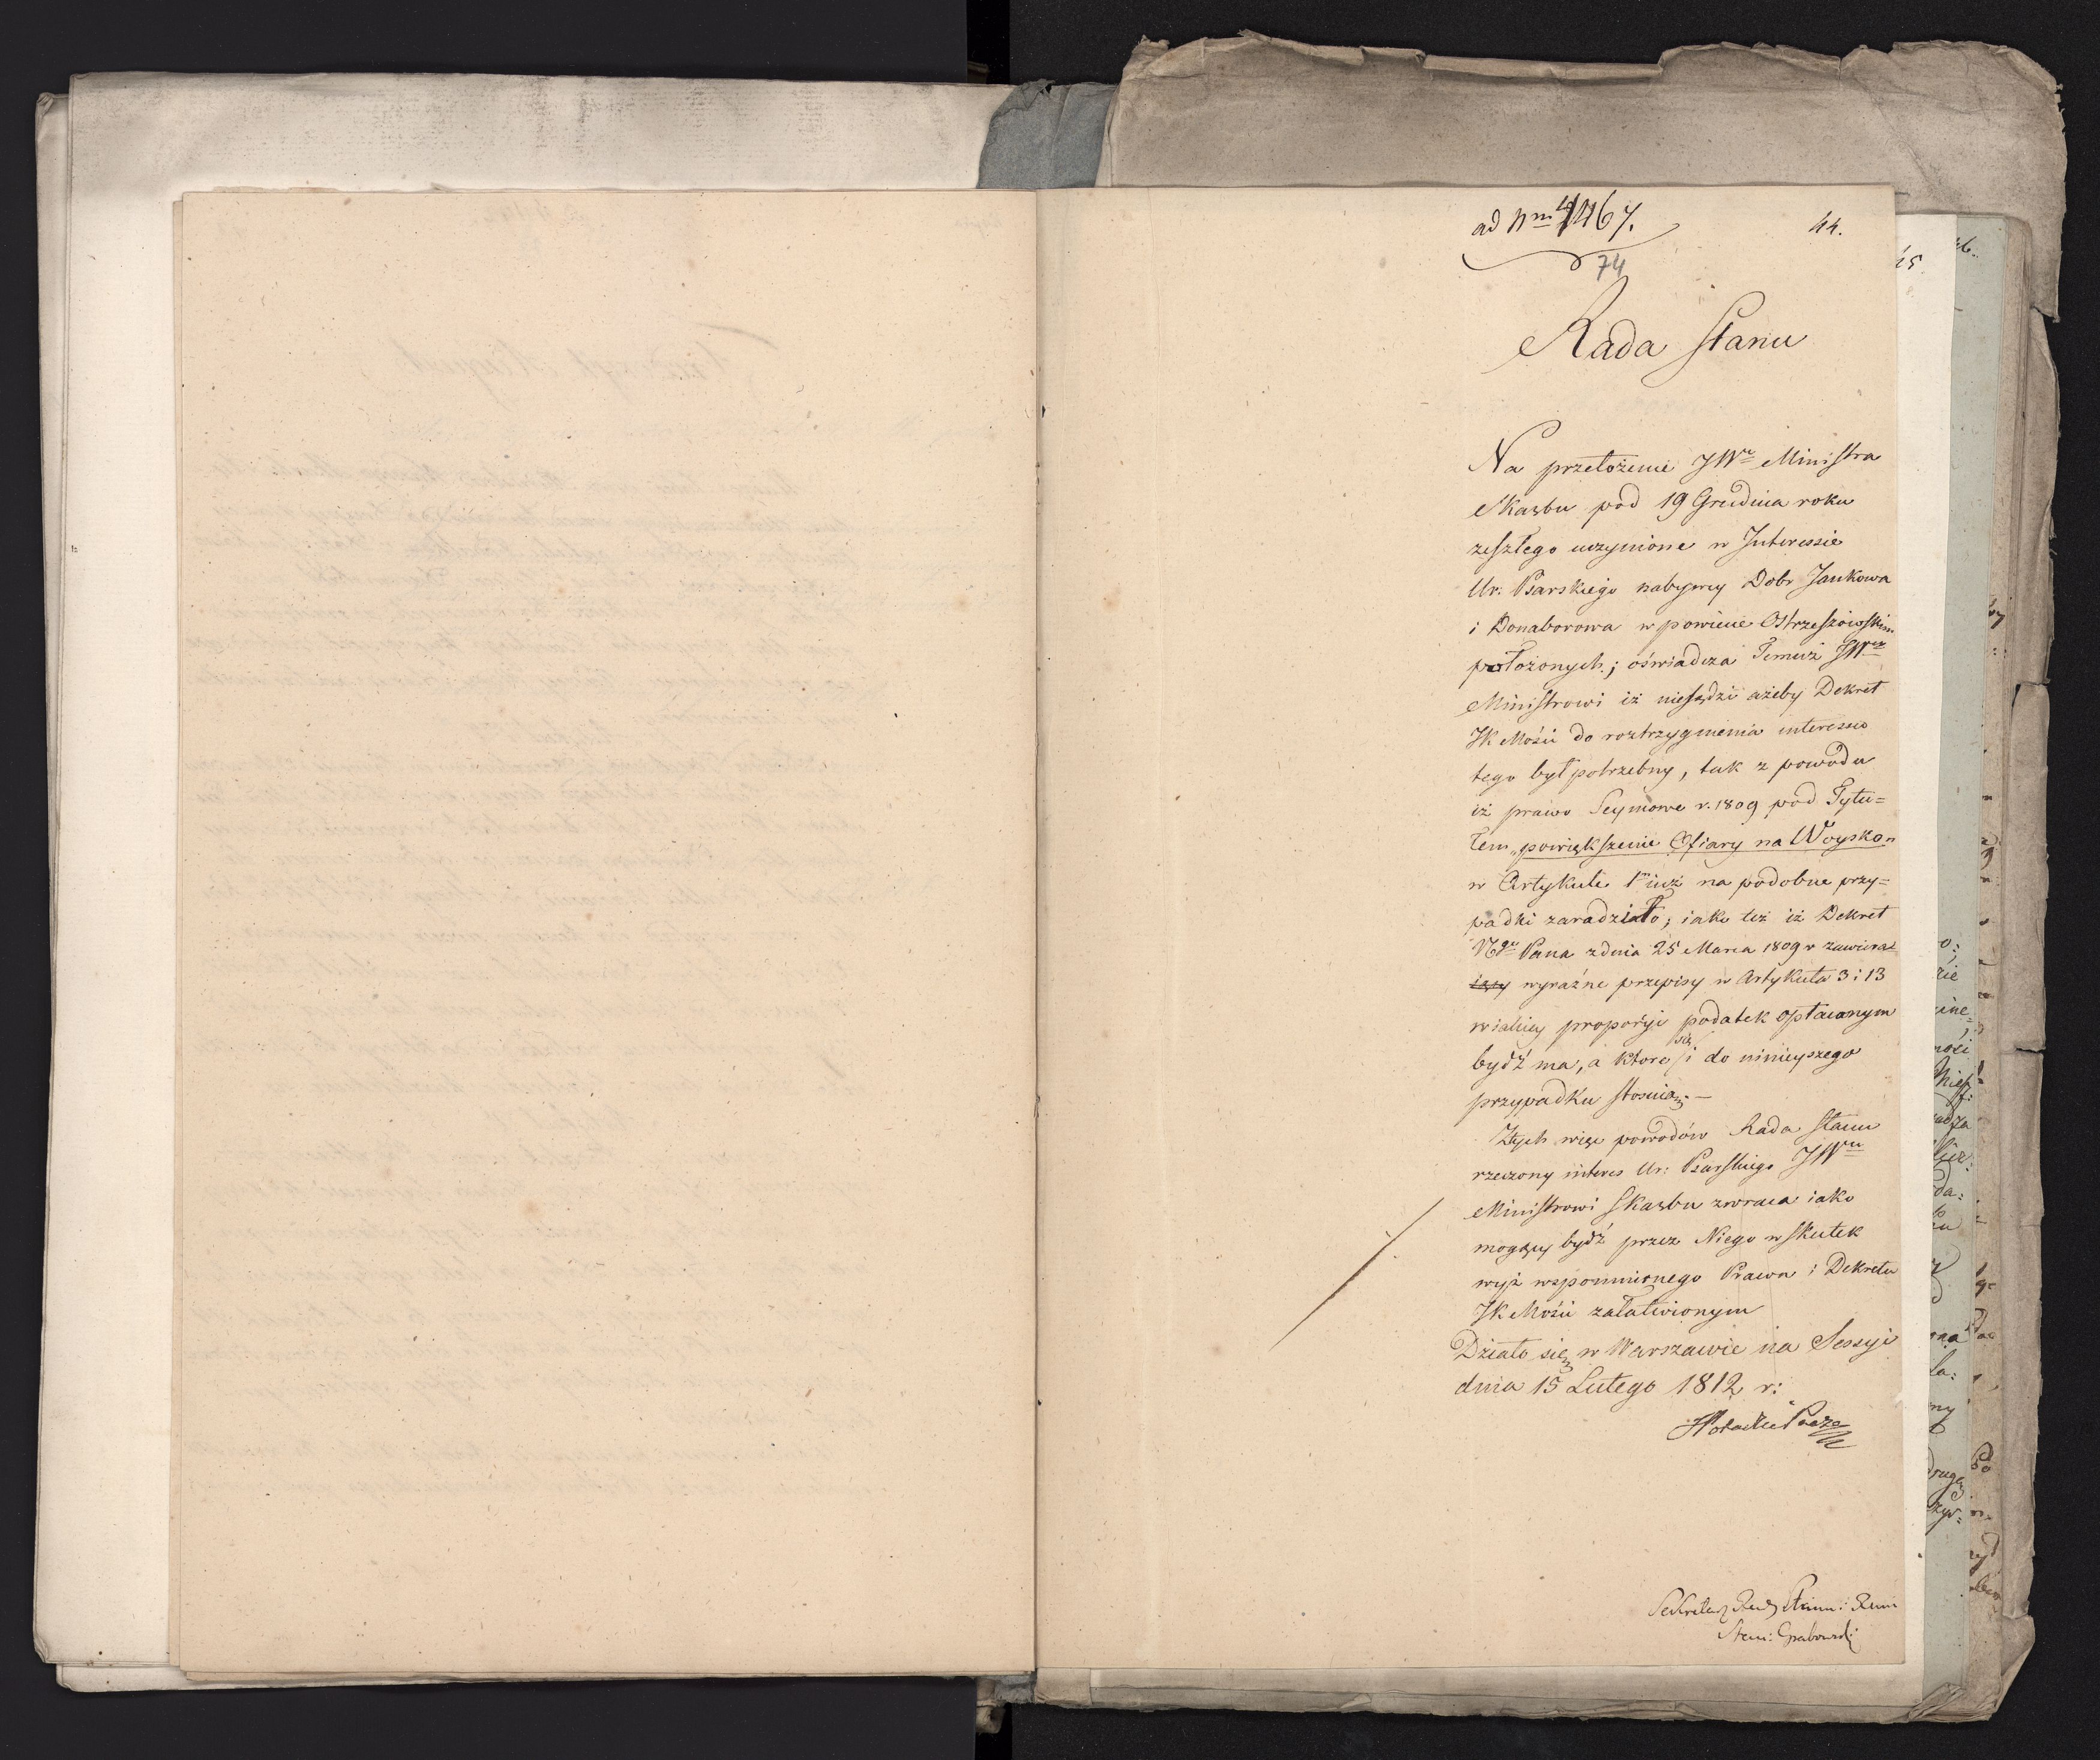 ad Nm 4467.
44.
74
Rada Stanu
Na przełożenie JWo Ministra
Skarbu pod 19 Grudnia roku
zeszłego uczynione w Interessie
Ur: Psarskiego nabywcy Dobr Jankowa
i Donaborowa w powiecie Ostrzeszowskim
położonych; oświadcza Temuż JWu
Ministrowi iż niesądzi ażeby Dekret
JK Mości do roztrzygnienia interessu
tego był potrzebny, tak z powodu
iż prawo Seymowe r. 1809 pod Tytu=
łem „powiększenie Ofiary na Woysko„
w Artykule 1m iuż na podobne przy=
padki zaradziło; iako też iż Dekret
Ngo Pana z dnia 25 Marca 1809 r zawiera
iący wyraźne przepisy w Artykuła 3 i 13
w iakiey proporcyi podatek opłacanym
bydź ma, a ktore się i do ninieyszego
przypadku stosuią. —
Z tych więc powodów Rada Stanu
rzeczony interes Ur: Psarskiego JWu
Ministrowi Skarbu zwraca iako
mogący bydź przez Niego w skutek
wyż wspomnionego Prawa i Dekretu
JK Mości załatwionym
Działo się w Warszawie na Sessyi
dnia 15 Lutego 1812 r:
Sekretarz Rady Stanu i
Stan: Grabowski
45
46.